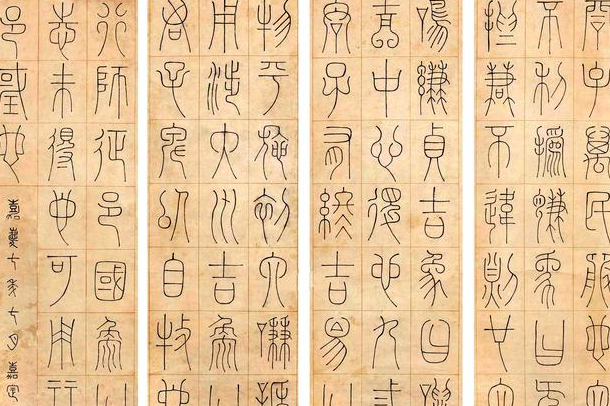 君子萬民服也六
不利撝謙象曰无
撝謙不違則也六
鳴謙貞吉象曰鳴
吉中心得也九三
君子有終吉象曰
物平施初六謙謙
用涉大川吉象曰
君子卑以自牧也
行師征邑國象曰
志未得也可用行
邑國也
嘉慶七年七月嘉定